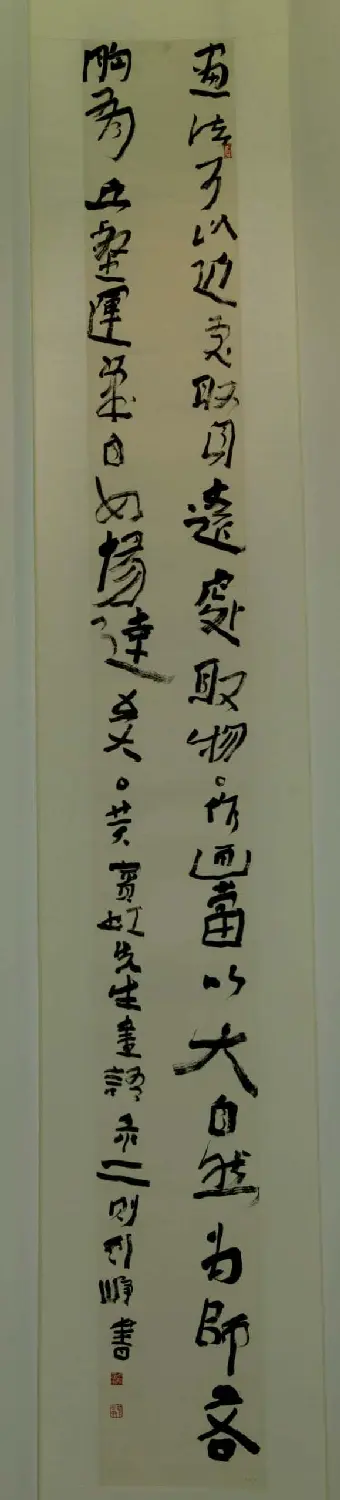 畫法可以近處取身遠處取物。作画當以大自然為師若
胸有丘壑運筆自如暢達矣。黃賓虹先生畫語录二則書